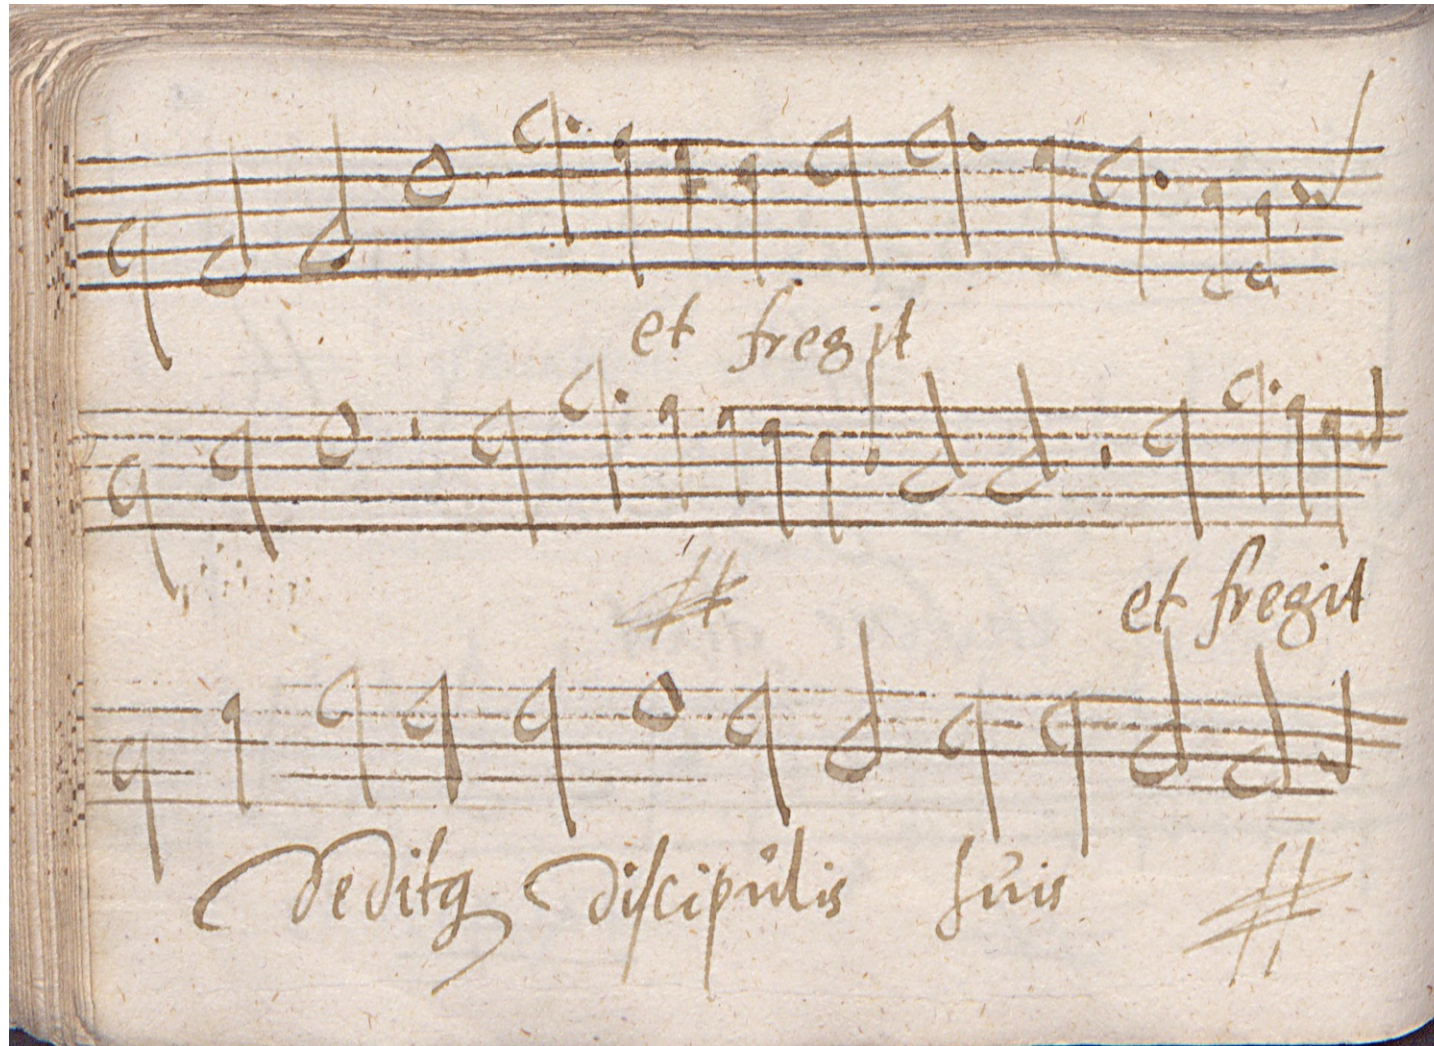 et fregit
et fregit
deditq discipulis suis